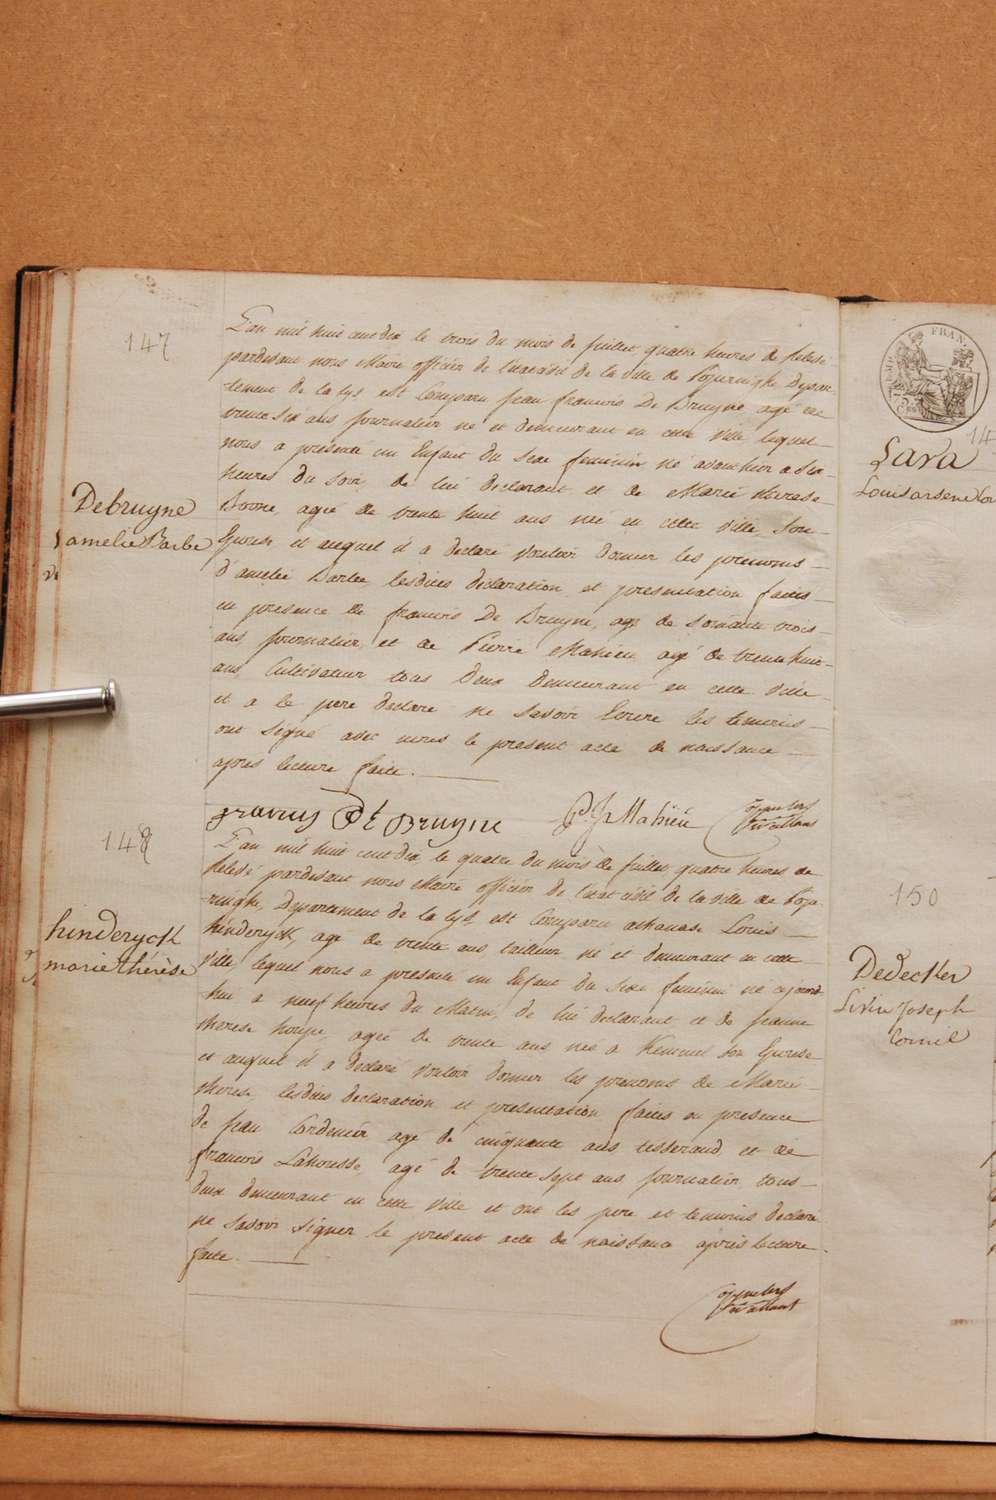 147
L'an mil huit cent dix le trois du mois de juillet quatre heures de relevé
pardevant nous Maire officier de l'état civil de la ville de Poperinghe Depar-
tement de la Lys est Comparu jean francois De Bruyne agé de
trente six ans journalier né et demeurant en cette ville lequel
nous a présenté un Enfant du sexe feminin né avant hier a six
heures du soir, de lui declarant et de Marie therese
Boone, agée de trente huit ans née en cette ville, son
Epouse et auquel il a declaré vouloir donner les prenoms
d'amelie Barbe, lesdites declaration et presentation faites
en presence de francois De Bruyne, agé de soixante trois
ans journalier, et de Pierre Mahieu agé de trente huit
ans Cultivateur tous deux demeurant en cette ville
et a le pere declaré ne savoir Ecrire les temoins
ont signé avec nous le present acte de naissance
apres lecture faite.
Debruyne
amelie Barbe
francus De BRuyne P J Mahieu
148
L'an mil huit cent dix le quatre du mois de juillet quatre heures de
relevé pardevant nous Maire officier de l'état civil de la ville de Pope
ringhe, Departement de la Lys, est Comparu athanase Louis
hinderyck, agé de trente ans tailleur né et demeurant en cette
ville, lequel nous a presenté un Enfant du sexe feminin né aujourd
hui a neuf heures du Matin, de lui declarant et de jeanne
therese houpe, agée de trente ans née a Kemmel son Epouse
et auquel il a declaré vouloir donner les prenoms de Marie
therese, lesdites declaration et presentation faites en presence
de jean Cordenier agé de cinquante ans tisserand et de
francois Lahousse, agé de trente sept ans journalier tous
deux demeurant en cette ville et ont les pere et temoins declaré
ne savoir signer le present acte de naissance apres lecture
faite.
hinderyck
marie thérèse
FRAN.
Lava
Louis arsene
150
Dedecker
Livin Joseph
Cornil